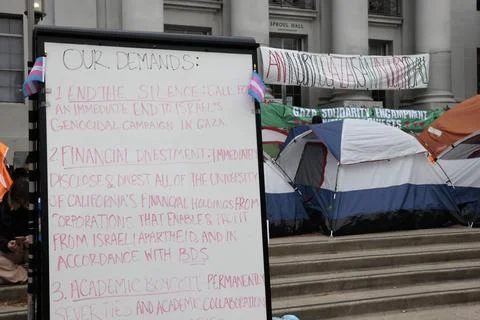 OUR DEMANDS:
1 END THE SILENCE: CALL FOR
AN IMMEDIATE END TO ISRAEL'S
GENOCIDAL CAMPAIGN IN GAZA.
2. FINANCIAL DIVESTMENT: IMMEDIATELY
DISCLOSE & DIVEST ALL OF THE UNIVERSITY
OF CALIFORNIA'S FINANCIAL HOLDINGS FROM
CORPORATIONS THAT ENABLE & PROFIT
FROM ISRAELI APARTHEID, AND IN
ACCORDANCE WITH BDS
3. ACADEMIC BOYCOTT PERMANENTLY
SEVER TIES AND ACADEMIC COLLABORATION
SPROUL HALL
GAZA SOLIDARITY ENCAMPMENT